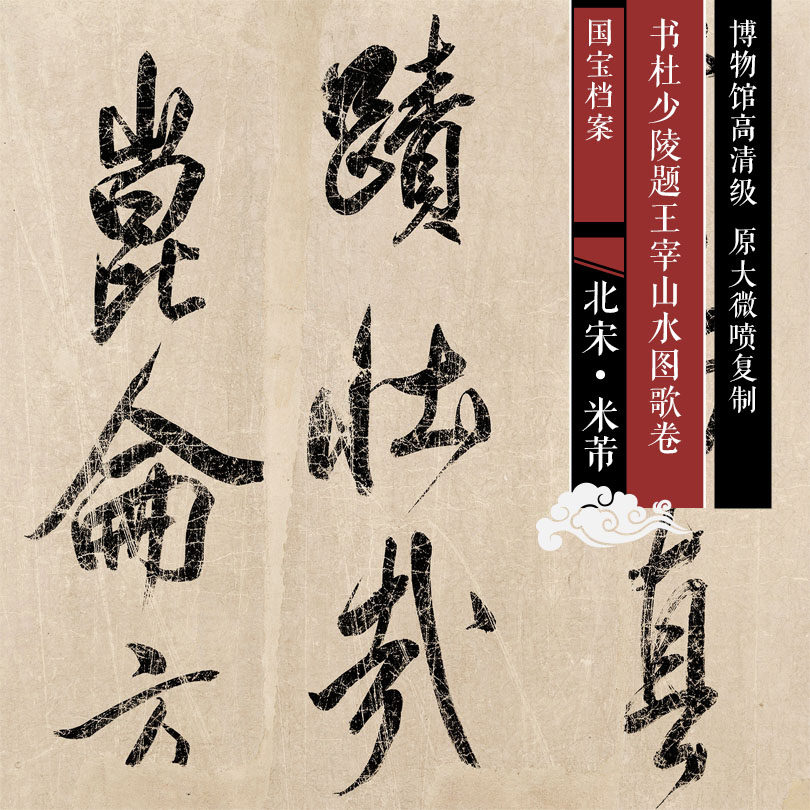 博物馆高清级 原大微喷复制
书杜少陵题王宰山水图歌卷
国宝档案
北宋·米芾
真
蹟壮哉
崑侖方